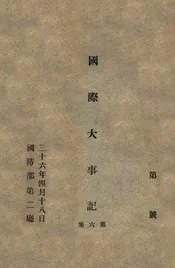 第　號
國際大事記
第六集
三十六年四月十八日
國防部第二廳